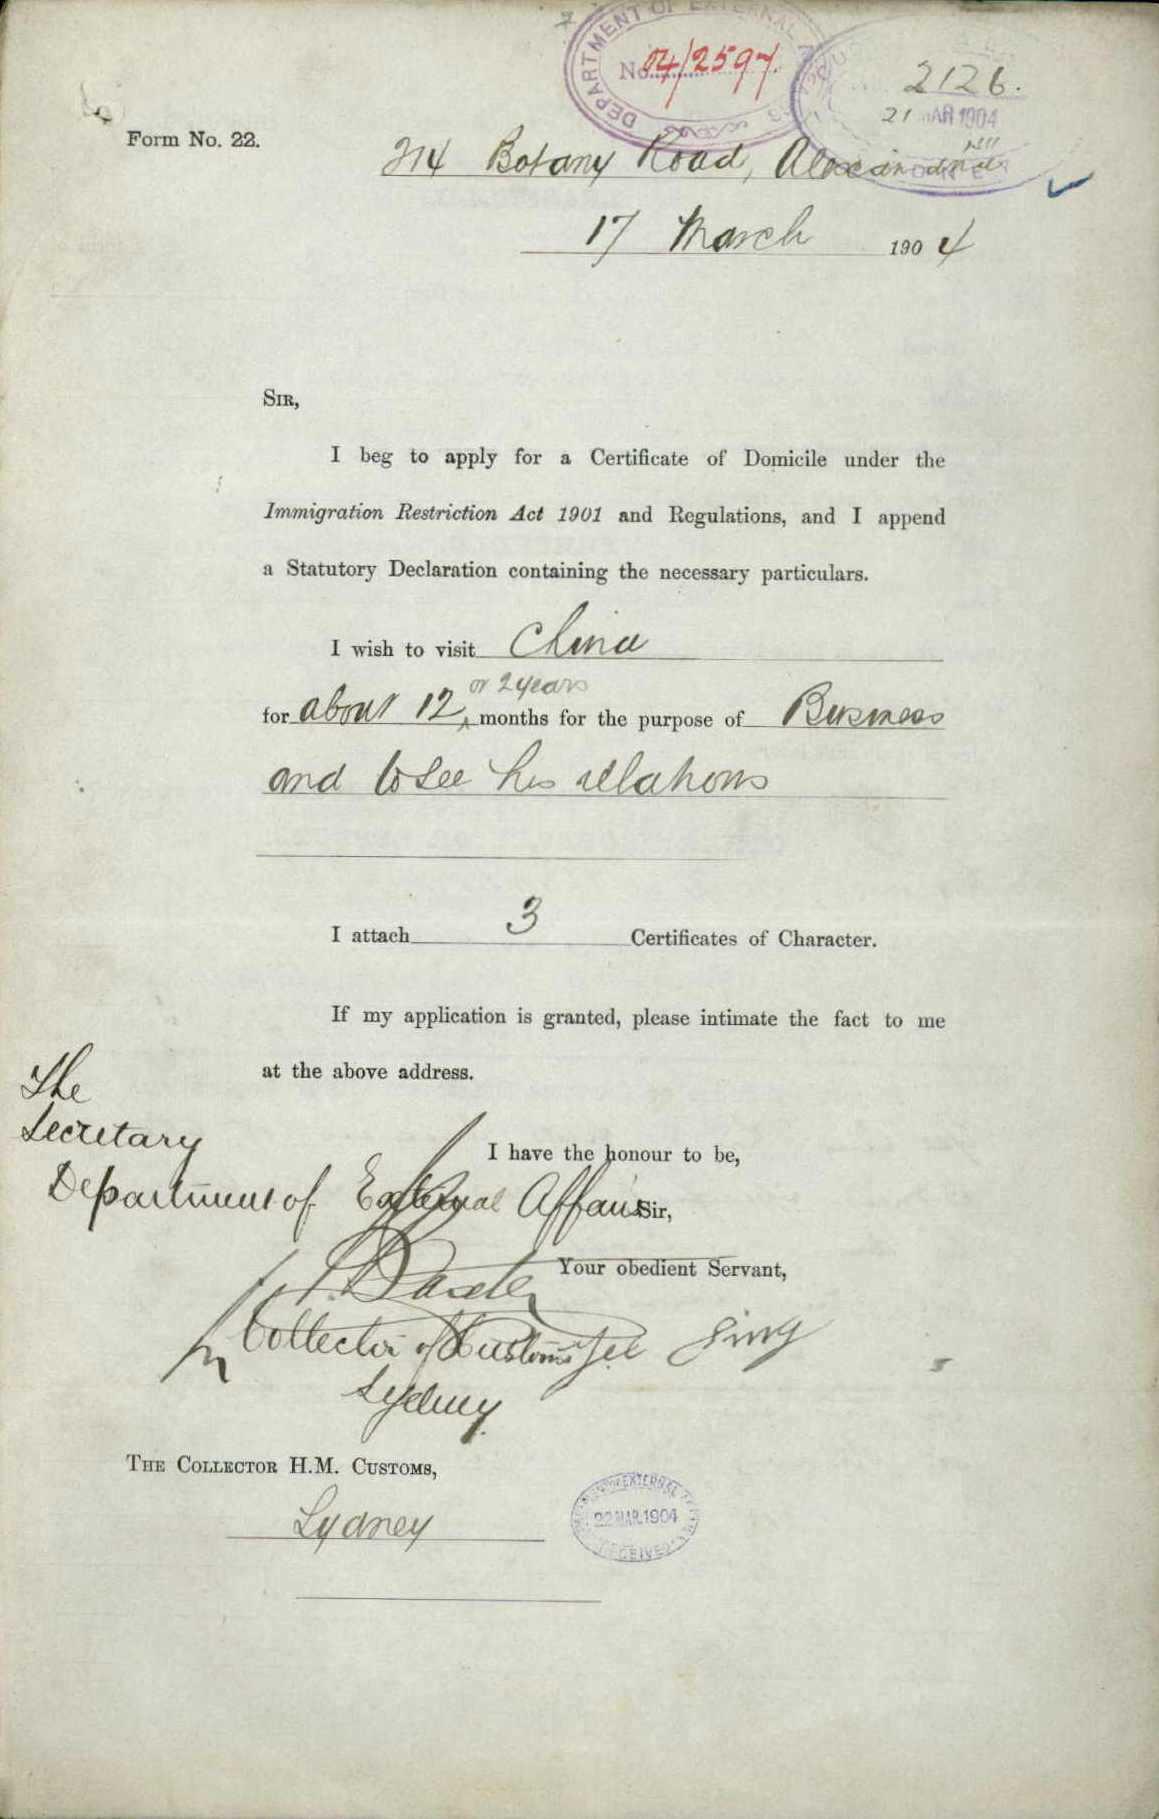 DEPARTMENT OF EXTERNAL
No. 04/2597.
2126.
21 MAR 1904
Form No. 22.
214 Botany Road, Alexandria
17 March 1904
SIR,
I beg to apply for a Certificate of Domicile under the
Immigration Restriction Act 1901 and Regulations, and I append
a Statutory Declaration containing the necessary particulars.
I wish to visit China
or 2 years
for about 12 months for the purpose of Business
and to see his relations
I attach 3 Certificates of Character.
If my application is granted, please intimate the fact to me
at the above address.
The
Secretary
I have the honour to be,
Department of External Affairs
Sir,
Baxter
Your obedient Servant,
Collector of Customs
Sydney
THE COLLECTOR H.M. CUSTOMS,
Sydney
EXTERNAL
22 MAR. 1904
RECEIVED